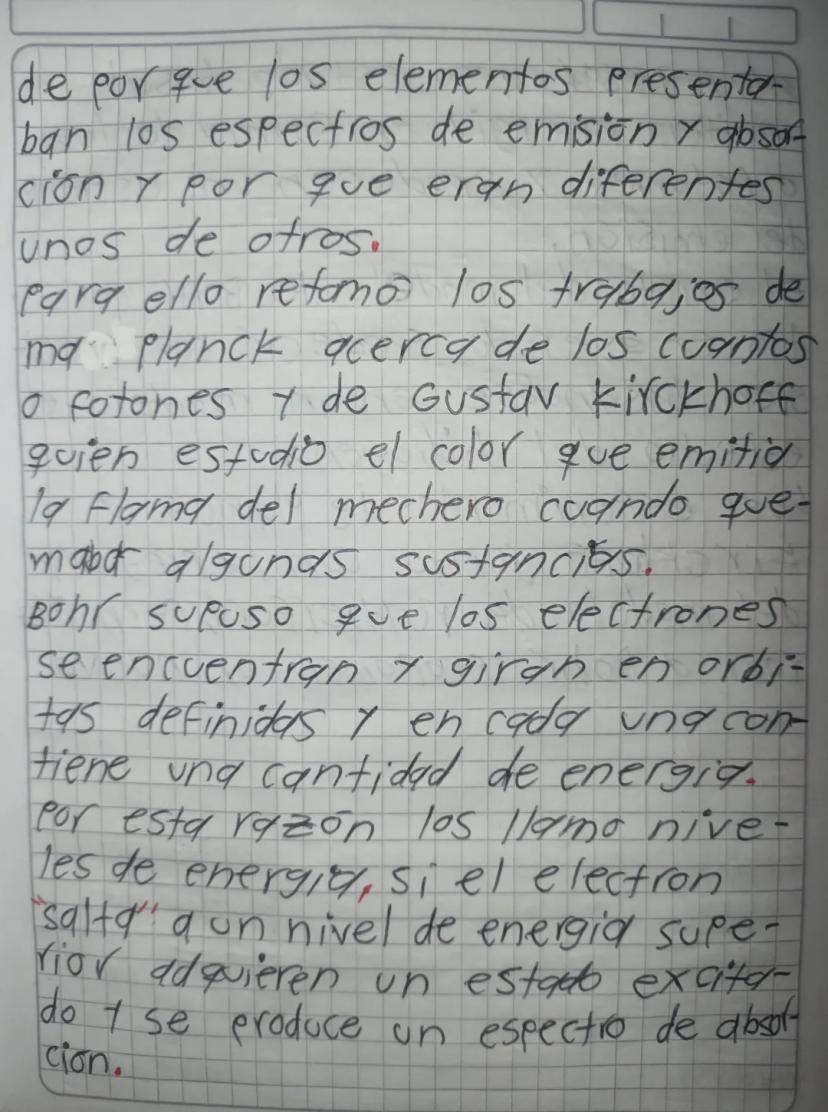 de por que los elementos presenta-
ban los espectros de emisión y absor-
ción y por que eran diferentes
unos de otros.
para ello retomó los trabajos de
ma planck acerca de los cuantos
o fotones y de Gustav Kirckhoff
quien estudió el color que emitia
la flama del mechero cuando que-
maba algunas sustancias.
Bohr supuso que los electrones
se encuentran y giran en orbi-
tas definidas y en cada una con-
tiene una cantidad de energia.
Por esta razón los llamo nive-
les de energia, si el electron
"salta" a un nivel de energia supe-
rior adquieren un estado excita-
do y se produce un espectro de absor-
cion.